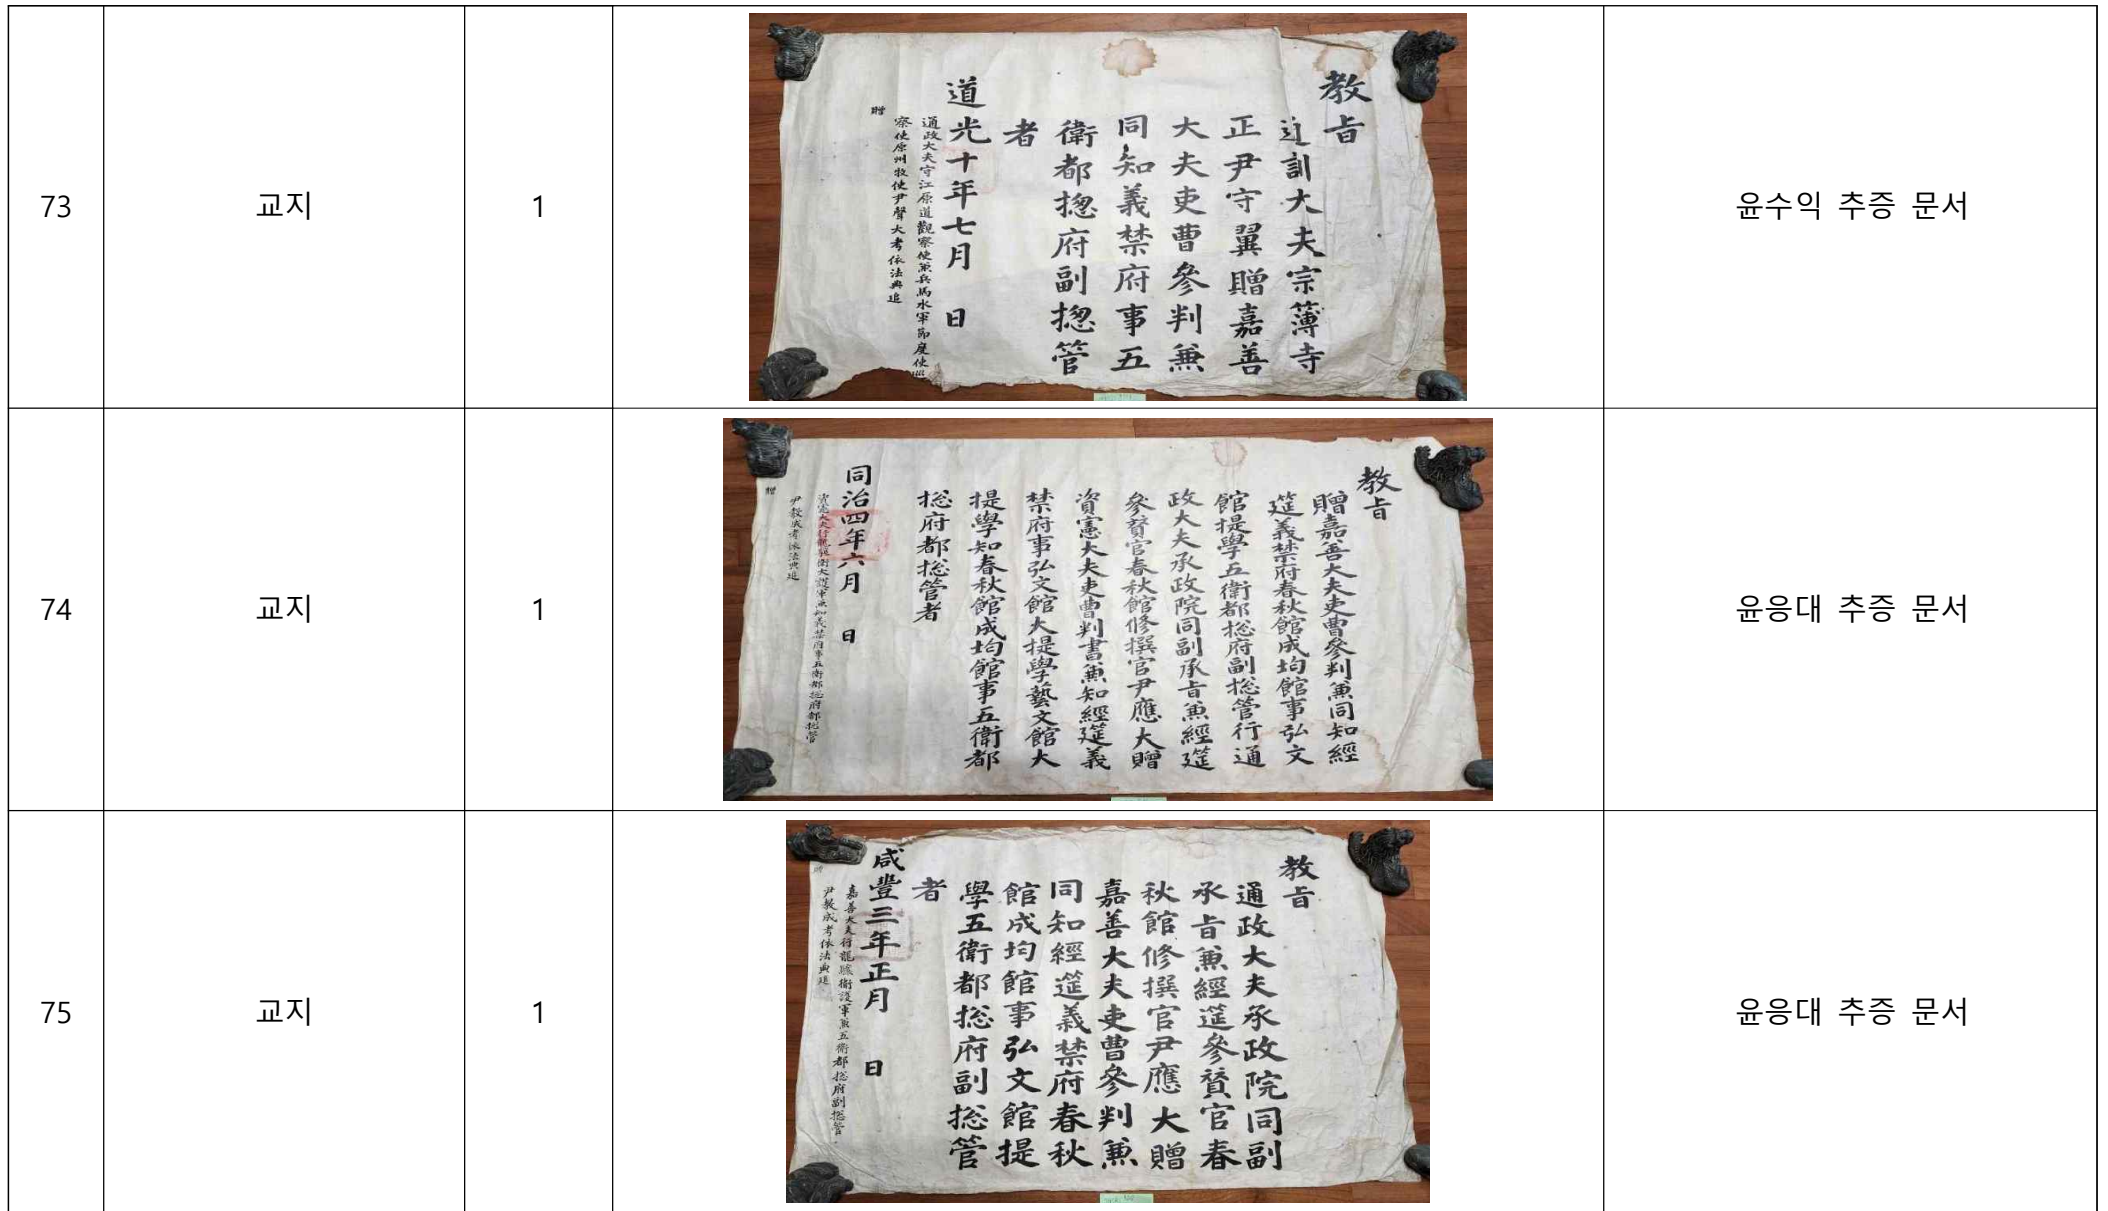 73
교지
1
敎旨
通訓大夫宗簿寺
正尹守翼贈嘉善
大夫吏曹參判兼
同知義禁府事五
衛都摠府副摠管
者
道光十年七月 日
通政大夫守江原道觀察使兼兵馬水軍節度使巡
察使原州牧使尹聲大考依法典追
贈
윤수익 추증 문서
74
교지
1
敎旨
贈嘉善大夫吏曹參判兼同知經
筵義禁府春秋館成均館事弘文
館提學五衛都摠府副摠管行通
政大夫承政院同副承旨兼經筵
參贊官春秋館修撰官尹應大贈
資憲大夫吏曹判書兼知經筵義
禁府事弘文館大提學藝文館大
提學知春秋館成均館事五衛都
摠府都摠管者
同治四年六月 日
資憲大夫行龍驤衛大護軍兼知義禁府事五衛都摠府都摠管
尹敎成考依法典追
贈
윤응대 추증 문서
75
교지
1
敎旨
通政大夫承政院同副
承旨兼經筵參贊官春
秋館修撰官尹應大贈
嘉善大夫吏曹參判兼
同知經筵義禁府春秋
館成均館事弘文館提
學五衛都摠府副摠管
者
咸豐三年正月 日
嘉善大夫行龍驤衛護軍兼五衛都摠府副摠管
尹敎成考依法典追
贈
윤응대 추증 문서